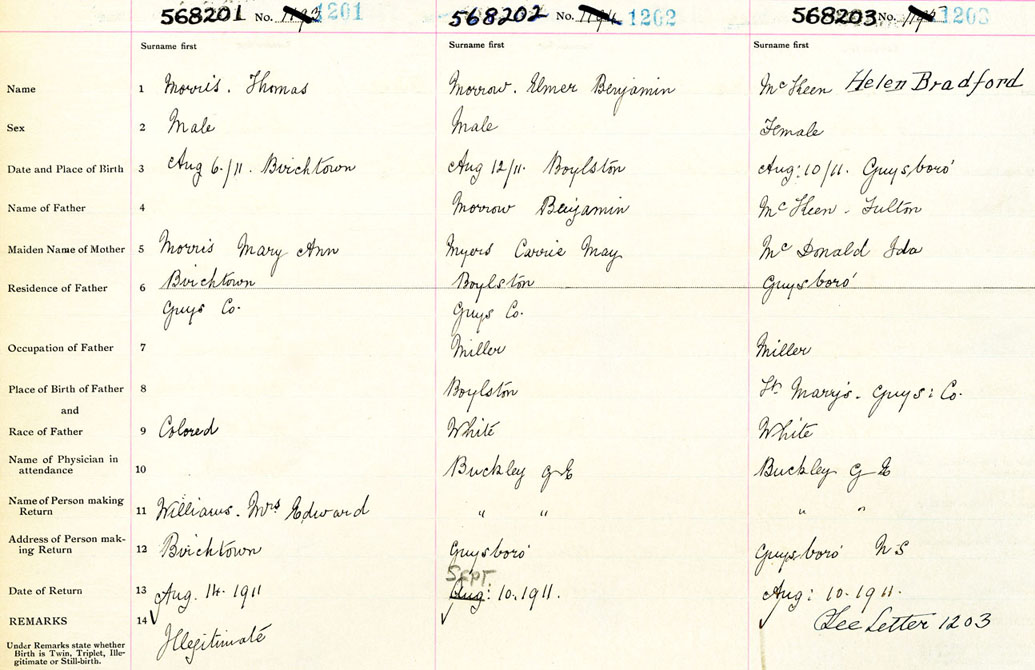 568201 No. 1193 1201 568202 No. 1194 1202 568203 No. 1203
Surname first Surname first Surname first
Name 1 Morris. Thomas Morrow. Elmer Benjamin McKeen Helen Bradford
Sex 2 Male Male Female
Date and Place of Birth 3 Aug 6./11. Birchtown Aug 12/11. Boylston Aug: 10/11. Guysboro'
Name of Father 4 Morrow Benjamin McKeen - Fulton
Maiden Name of Mother 5 Morris Mary Ann Myers Carrie May McDonald Ida
Residence of Father 6 Birchtown Boylston Guysboro'
Guys Co. Guys Co.
Occupation of Father 7 Miller Miller
Place of Birth of Father 8 Boylston St. Mary's. Guys: Co.
and
Race of Father 9 Colored White White
Name of Physician in
attendance 10 Buckley G E Buckley G E
Name of Person making
Return 11 Williams. Mrs Edward " " " "
Address of Person mak-
ing Return 12 Birchtown Guysboro' Guysboro' N S
SEPT.
Date of Return 13 Aug. 14. 1911 Aug: 10. 1911. Aug: 10. 1911.
REMARKS 14 Illegitimate See Letter 1203
Under Remarks state whether
Birth is Twin, Triplet, Ille-
gitimate or Still-birth.